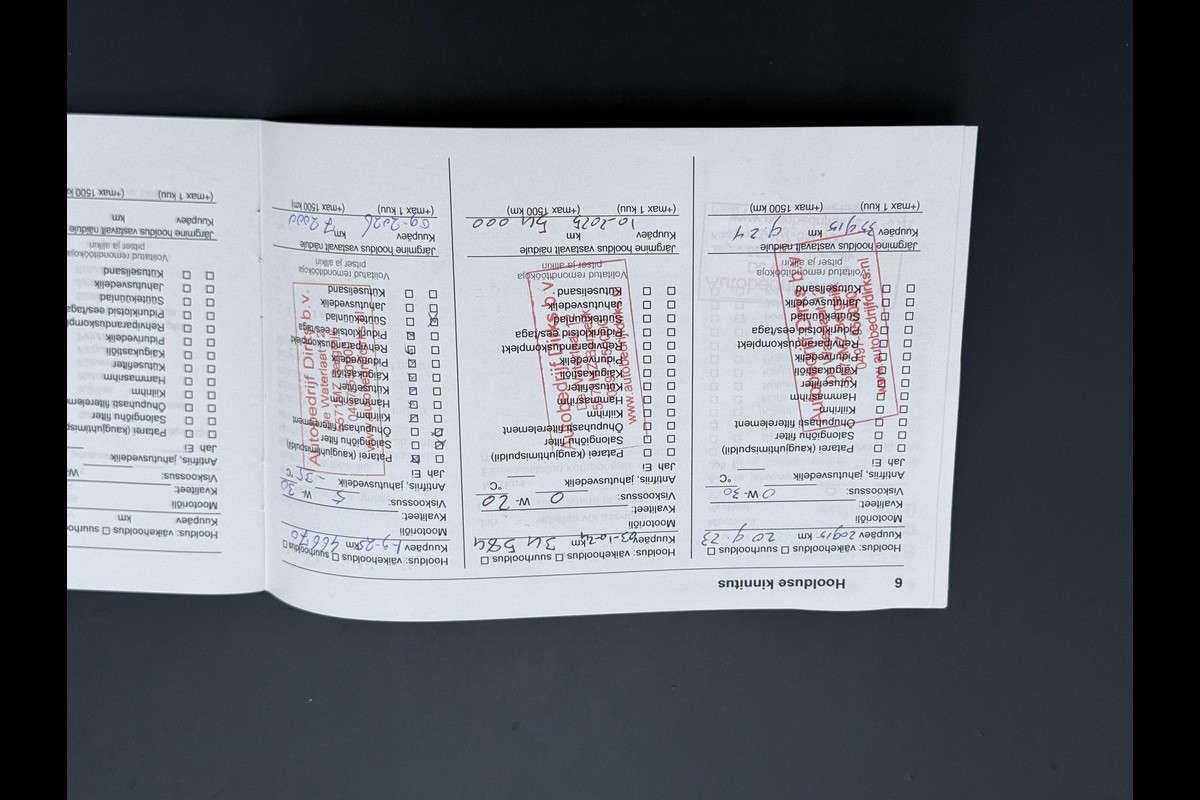 6 Hoolduse kinnitus
Hooldus: väikehooldus ☐ suurhooldus ☐
Kuupäev 20915 km 20.9.23
Mootoriõli
Kvaliteet:
Viskoossus: 0 W- 30
Antifriis, jahutusvedelik °C
Jah Ei
☐ ☐ Patarei (kaugjuhtimispuldi)
☐ ☐ Salongiõhu filter
☐ ☐ Õhupuhasti filterelement
☐ ☐ Kiilrihm
☐ ☐ Hammasrihm
☐ ☐ Kütusefilter
☐ ☐ Käigukastiõli
☐ ☐ Pidurivedelik
☐ ☐ Rehviparanduskomplekt
☐ ☐ Piduriklotsid ees/taga
☐ ☐ Süüteküünlad
☐ ☐ Jahutusvedelik
☐ ☐ Kütuselisand
Volitatud remonditöökoja
pitser ja allkiri
Autobedrijf Dirks b.v.
www.autobedrijfdirks.nl
Järgmine hooldus vastavalt näidule
Kuupäev 35915 km 9 24
(+max 1 kuu) (+max 1500 km)
Hooldus: väikehooldus ☐ suurhooldus ☐
Kuupäev 03-10-24 km 34584
Mootoriõli
Kvaliteet:
Viskoossus: 0 W- 20
Antifriis, jahutusvedelik °C
Jah Ei
☐ ☐ Patarei (kaugjuhtimispuldi)
☐ ☐ Salongiõhu filter
☐ ☐ Õhupuhasti filterelement
☐ ☐ Kiilrihm
☐ ☐ Hammasrihm
☐ ☐ Kütusefilter
☐ ☐ Käigukastiõli
☐ ☐ Pidurivedelik
☐ ☐ Rehviparanduskomplekt
☐ ☐ Piduriklotsid ees/taga
☐ ☐ Süüteküünlad
☐ ☐ Jahutusvedelik
☐ ☐ Kütuselisand
Volitatud remonditöökoja
pitser ja allkiri
Autobedrijf Dirks b.v.
www.autobedrijfdirks.nl
Järgmine hooldus vastavalt näidule
Kuupäev 10-2025 km 54000
(+max 1 kuu) (+max 1500 km)
Hooldus: väikehooldus ☐ suurhooldus ☐
Kuupäev 1-9-25 km 46670
Mootoriõli
Kvaliteet:
Viskoossus: 5 W- 30
Antifriis, jahutusvedelik -35 °C
Jah Ei
Patarei (kaugjuhtimispuldi)
Salongiõhu filter
Õhupuhasti filterelement
Kiilrihm
Hammasrihm
Kütusefilter
Käigukastiõli
Pidurivedelik
Rehviparanduskomplekt
Piduriklotsid ees/taga
Süüteküünlad
Jahutusvedelik
Kütuselisand
Volitatud remonditöökoja
pitser ja allkiri
Autobedrijf Dirks b.v.
De Waterlaat
Järgmine hooldus vastavalt näidule
Kuupäev 09-2026 km 72000
(+max 1 kuu) (+max 1500 km)
Hooldus: väikehooldus ☐ suurhooldus
Kuupäev km
Mootoriõli
Kvaliteet:
Viskoossus: W-
Antifriis, jahutusvedelik
Jah Ei
☐ ☐ Patarei (kaugjuhtimisp
☐ ☐ Salongiõhu filter
☐ ☐ Õhupuhasti filterelem
☐ ☐ Kiilrihm
☐ ☐ Hammasrihm
☐ ☐ Kütusefilter
☐ ☐ Käigukastiõli
☐ ☐ Pidurivedelik
☐ ☐ Rehviparanduskompl
☐ ☐ Piduriklotsid ees/taga
☐ ☐ Süüteküünlad
☐ ☐ Jahutusvedelik
☐ ☐ Kütuselisand
Volitatud remonditöökoja
pitser ja allkiri
Järgmine hooldus vastavalt näidule
Kuupäev km
(+max 1 kuu) (+max 1500 km)